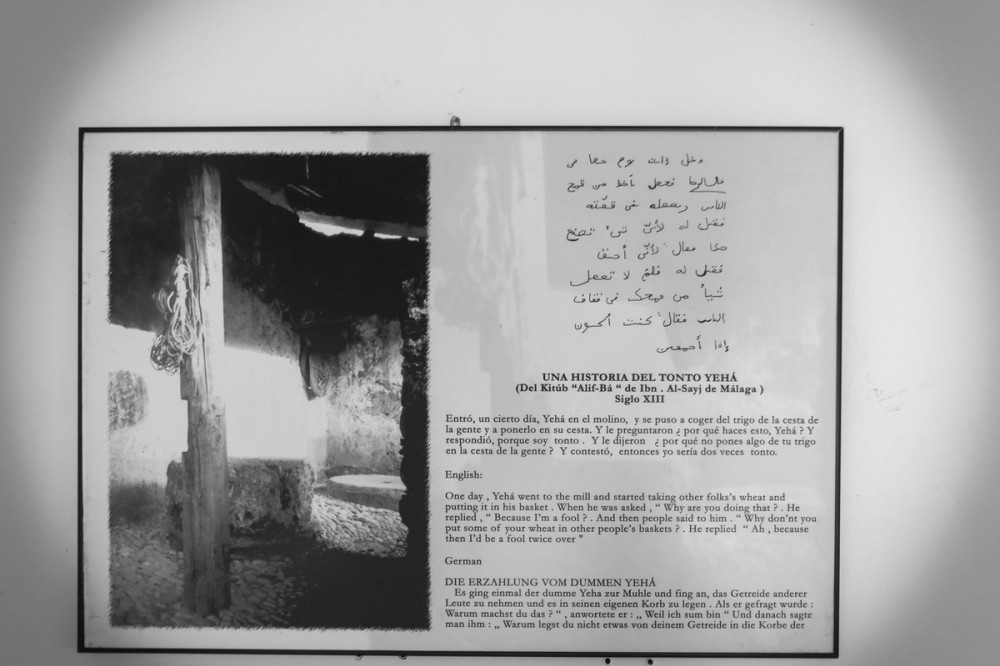 دخل ذات يوم جحا في
فجعل يأخذ من قمح
الناس ويجعله في قفّته
فقيل له لأيّ شيء تصنع
هذا فقال: لأنّي أحمق
فقيل له فلم لا تجعل
شيئاً من قمحك في قفاف
الناس فقال: كنت أكون
إذا أحمقين
UNA HISTORIA DEL TONTO YEHÁ
(Del Kitúb “Alif-Bá “ de Ibn . Al-Sayj de Málaga )
Siglo XIII
Entró, un cierto día, Yehá en el molino, y se puso a coger del trigo de la cesta de
la gente y a ponerlo en su cesta. Y le preguntaron ¿ por qué haces esto, Yehá ? Y
respondió, porque soy tonto . Y le dijeron ¿ por qué no pones algo de tu trigo
en la cesta de la gente ? Y contestó, entonces yo sería dos veces tonto.
English:
One day , Yehá went to the mill and started taking other folks's wheat and
putting it in his basket . When he was asked , “ Why are you doing that ? . He
replied , “ Because I'm a fool ? . And then people said to him . “ Why don'nt you
put some of your wheat in other people's baskets ? . He replied “ Ah , because
then I'd be a fool twice over ”
German
DIE ERZAHLUNG VOM DUMMEN YEHÁ
Es ging einmal der dumme Yeha zur Muhle und fing an, das Getreide anderer
Leute zu nehmen und es in seinen eigenen Korb zu legen . Als er gefragt wurde :
Warum machst du das ? “ , anwortete er : ,, Weil ich sum bin “ Und danach sagte
man ihm : ,, Warum legst du nicht etwas von deinem Getreide in die Korbe der